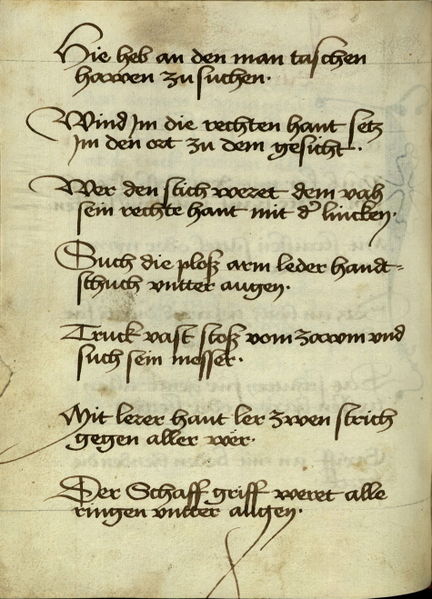 Hie heb an den man taschen
hawen zu suchen·
Wind Jm die rechten hant setz
Jm den ort zu dem gesicht·
Wer den stich weret dem vah
sein rechte hant mit dʼ lincken·
Such die ploß arm leder handt=
schuch vntter augen·
Truck vast stoß vom zawm vnd
such sein messer·
Mit lerer hant ler zwen strich
gegen aller wer·
Der Schaff griff weret alle
ringen vntter augen·